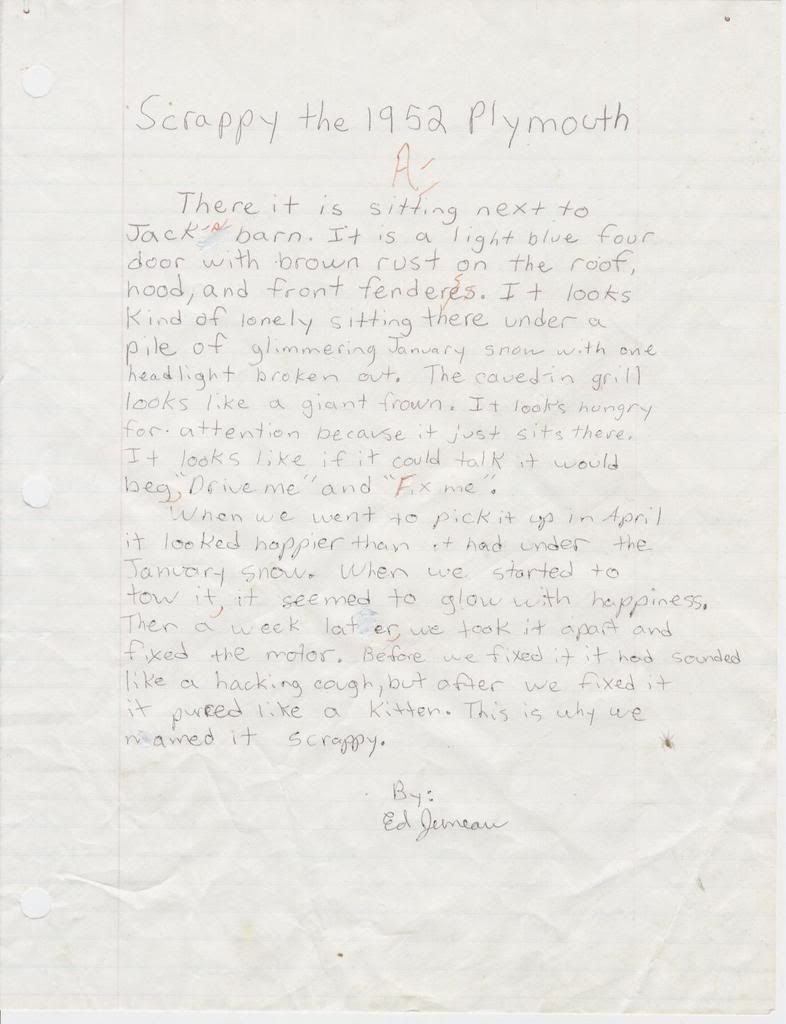 Scrappy the 1952 Plymouth
A-
There it is sitting next to
Jack's barn. It is a light blue four
door with brown rust on the roof,
hood, and front fenders. It looks
kind of lonely sitting there under a
pile of glimmering January snow with one
headlight broken out. The caved-in grill
looks like a giant frown. It looks hungry
for attention because it just sits there.
It looks like if it could talk it would
beg, "Drive me" and "Fix me".
When we went to pick it up in April
it looked happier than it had under the
January snow. When we started to
tow it, it seemed to glow with happiness.
Then a week later, we took it apart and
fixed the motor. Before we fixed it it had sounded
like a hacking cough, but after we fixed it
it purred like a kitten. This is why we
named it Scrappy.
By:
Ed